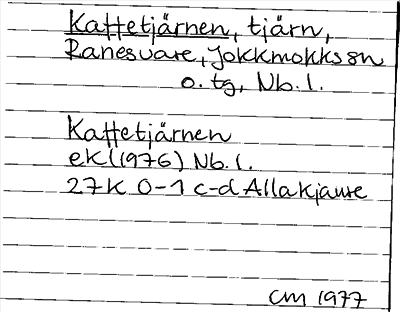 Kattetjärnen, tjärn,
Ranesvare, Jokkmokks sn
o. tg, Nb. l.
Kattetjärnen
ek (1976) Nb. l.
27K 0-1 c-d Allakjaure
CM 1977